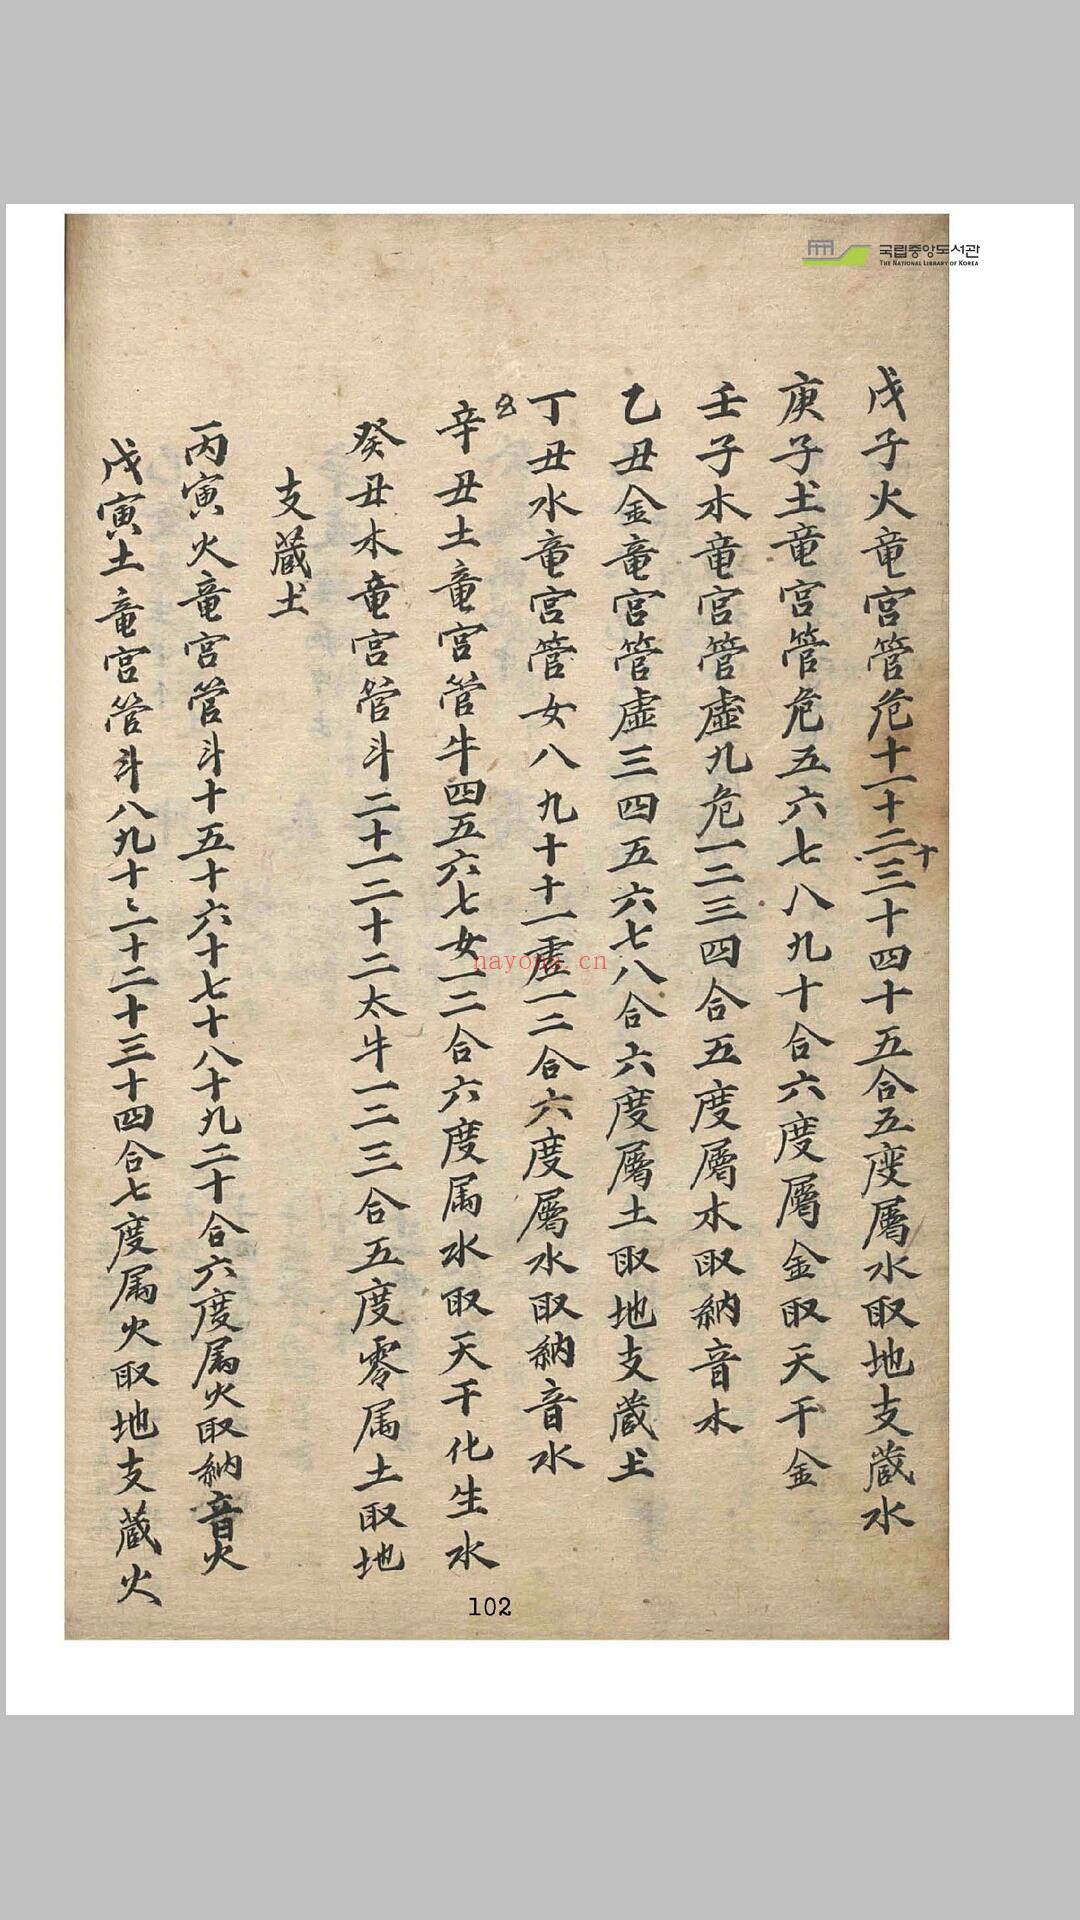 국립중앙도서관
THE NATIONAL LIBRARY OF KOREA
戊子火竜宮管危十一十二十三十四十五合五度屬水取地支蔵水
庚子土竜宮管危五六七八九十合六度屬金取天干金
壬子木竜宮管虛九危一二三四合五度屬木取納音木
乙丑金竜宮管虛三四五六七八合六度屬土取地支蔵土
丁丑水竜宮管女八九十十一虛一二合六度屬水取納音水
辛丑土竜宮管牛四五六七女一二合六度属水取天干化生水
癸丑木竜宮管斗二十一二十二太牛一二三合五度零属土取地
支蔵土
丙寅火竜宮管斗十五十六十七十八十九二十合六度属火取納音火
戊寅土竜宮管斗八九十〻一十二十三十四合七度属火取地支蔵火
nayona.cn
102